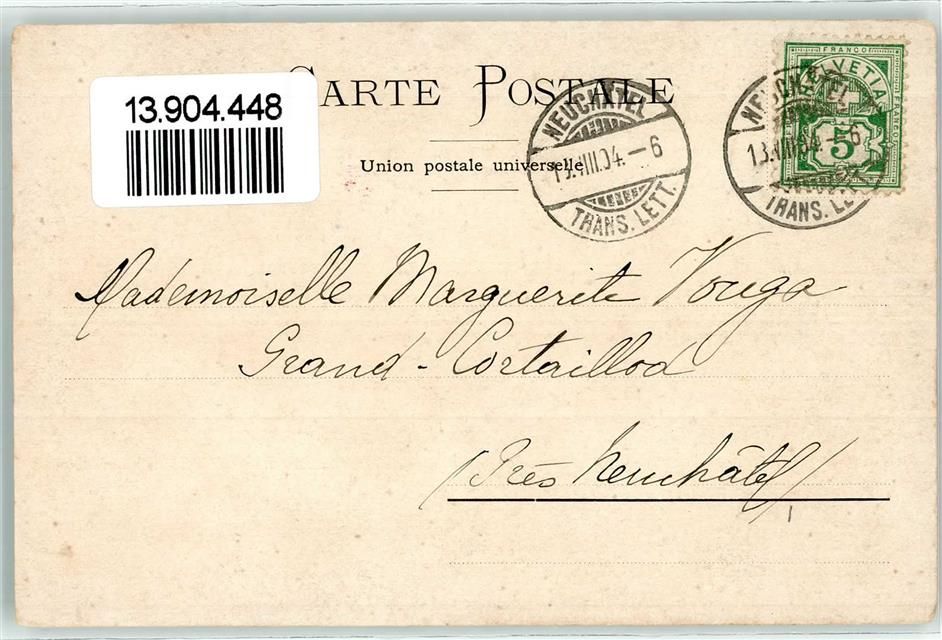 13.904.448
CARTE POSTALE
Union postale universelle
NEUCHATEL
13.VIII.04.–6
TRANS. LETT.
FRANCO
HELVETIA
FRANCO
5
NEUCHATEL
13.VIII.04. 6
TRANS. LETT.
Mademoiselle Marguerite Vouga
Grand-Cortaillod
(Près Neuchâtel)